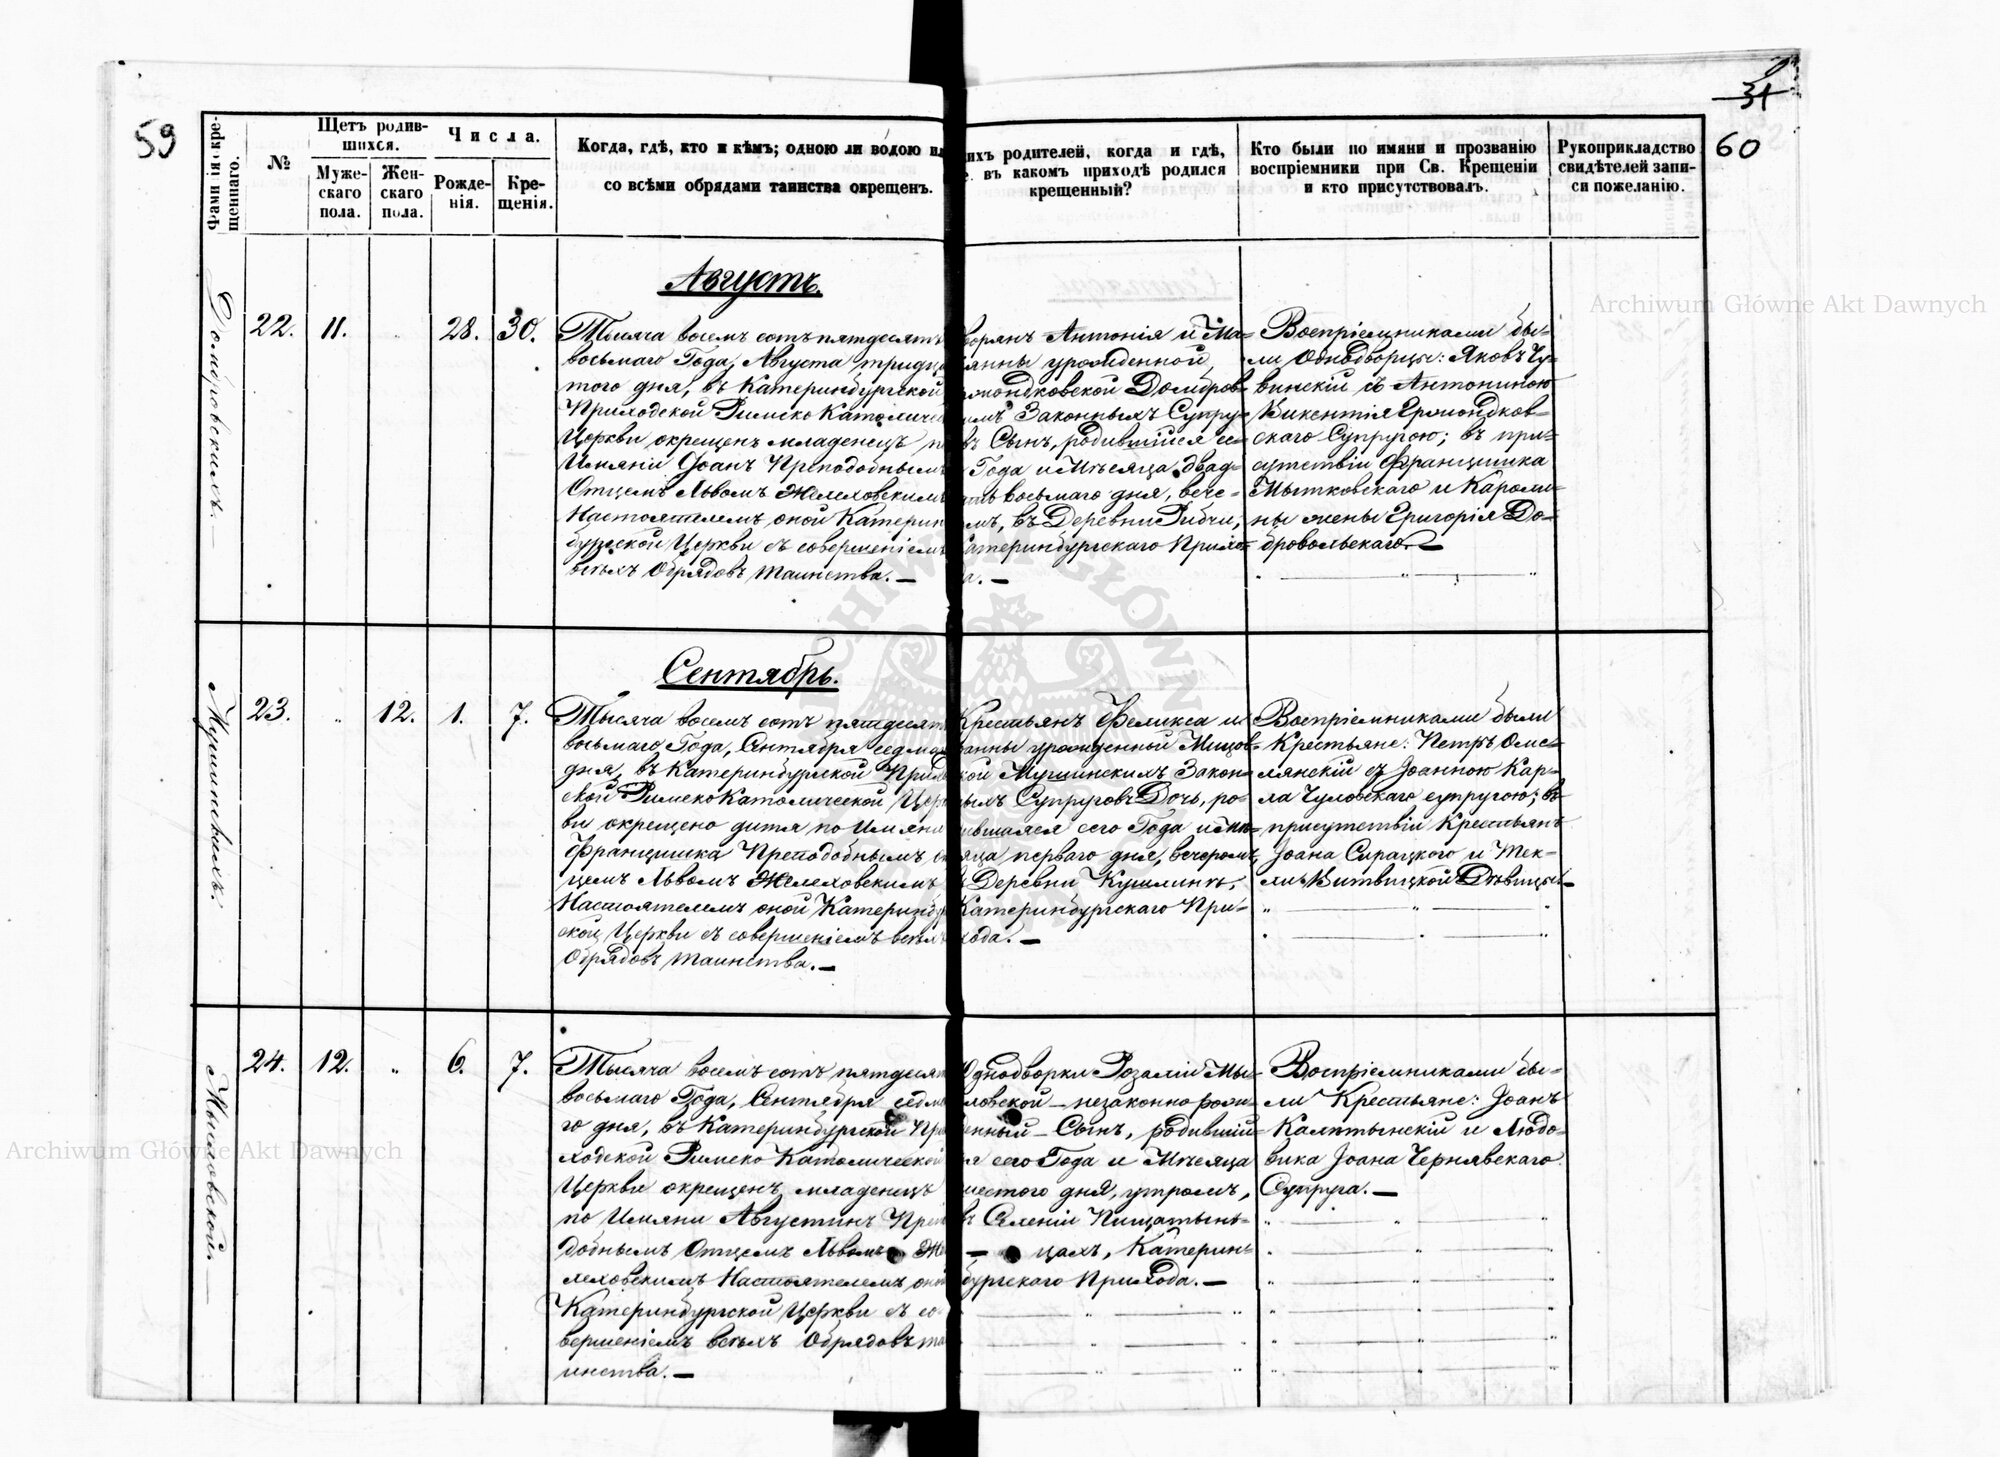 59
31
60
Фамилія кре-
щеннаго.
№
Щетъ родив-
шихся.
Муже-
скаго
пола.
Жен-
скаго
пола.
Числа.
Рожде-
нія.
Кре-
щенія.
Когда, гдѣ, кто и кѣмъ; одною ли водою ил
со всѣми обрядами таинства окрещенъ.
ихъ родителей, когда и гдѣ,
въ какомъ приходѣ родился
крещенный?
Кто были по имяни и прозванію
воспріемники при Св. Крещеніи
и кто присутствовалъ.
Рукоприкладство
свидѣтелей запи-
си пожеланію.
Archiwum Główne Akt Dawnych
Августъ.
Домбровскихъ.
22. 11. 28. 30.
Тысяча восемъ сотъ пятдесятъ
восьмаго Года, Августа тридца
того дня, въ Катеринбургской
Приходской Римско Католичес
Церкви окрещенъ младенецъ п
Имяни Іоанъ Преподобнымъ
Отцемъ Львомъ Желеховскимъ
Настоятелемъ оной Катерин
бургской Церкви съ совершеніемъ
всѣхъ Обрядовъ таинства.
ворянъ Антонія и Ма-
іанны урожденной
рмондковской Домбров-
имъ Законныхъ Супру-
въ Сынъ, родившійся се-
Года и Мѣсяца двад-
ать восьмаго дня, вече-
мъ, въ Деревни Рибчи,
атеринбургскаго Прихо-
а.
Воспріемниками бы-
ли Однодворцы: Яковъ Чу-
винскій съ Антониною
Викентія Ермондков-
скаго Супругою; въ при-
сутствіи Францишка
Мытковскаго и Кароли-
ны жены Григорія До-
бровольскаго.
Сентябрь.
Мушинскихъ.
23. " 12. 1. 7.
Тысяча восемъ сотъ пятдесят
восьмаго Года, Сентября седмаго
дня, въ Катеринбургской Прихо
ской Римско Католической Церк
ви окрещено дитя по Имяни
Францишка Преподобнымъ О
цемъ Львомъ Желеховскимъ
Настоятелемъ оной Катеринбу
ской Церкви съ совершеніемъ всѣхъ
Обрядовъ таинства.
Крестьянъ Феликса и
анны урожденной Мицов-
кой Мушинскихъ Закон-
ыхъ Супруговъ Дочь, ро-
ившаяся сего Года и Мѣ-
яца перваго дня, вечеромъ,
Деревни Кушлинъ,
Катеринбургскаго При-
хода.
Воспріемниками были
Крестьяне: Петръ Оме-
лянскій съ Іоанною Кар-
ла Чуловскаго супругою; въ
присутствіи Крестьянъ
Іоана Сирацкого и Тек-
ли Витвицкой Дѣвицы
Мысловской.
24. 12. " 6. 7.
Тысяча восемъ сотъ пятдесят
восьмаго Года, Сентября седма
го дня, въ Катеринбургской При
ходской Римско Католической
Церкви окрещенъ младенецъ
по Имяни Августинъ Преп
добнымъ Отцемъ Львомъ Же
леховскимъ Настоятелемъ оной
Катеринбургской Церкви съ со
вершеніемъ всѣхъ Обрядовъ та
инства.
Однодворки Розаліи Мы-
ловской незаконно рож-
енный Сынъ, родившій-
я сего Года и Мѣсяца
шестого дня, утромъ,
въ Селеніи Пищатын-
цахъ, Катерин-
бургскаго Прихода.
Воспріемниками бы-
ли Крестьяне: Іоанъ
Калтынскій и Людо-
вика Іоана Чернявскаго
Супруга.
Archiwum Główne Akt Dawnych